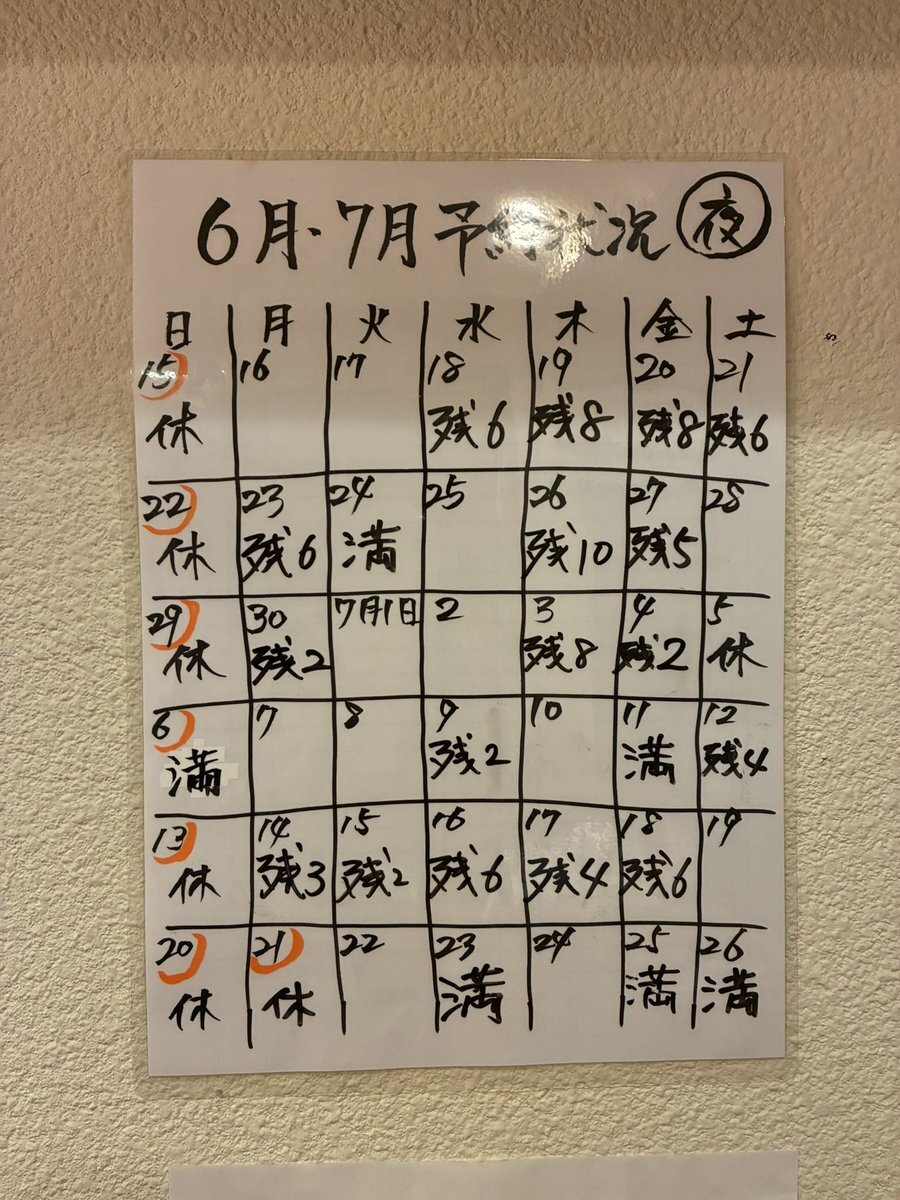 6月・7月予約状況 夜
日 月 火 水 木 金 土
15 16 17 18 19 20 21
休 残6 残8 残8 残6
22 23 24 25 26 27 28
休 残6 満 残10 残5
29 30 7月1日 2 3 4 5
休 残2 残8 残2 休
6 7 8 9 10 11 12
満 残2 満 残4
13 14 15 16 17 18 19
休 残3 残2 残6 残4 残6
20 21 22 23 24 25 26
休 休 満 満 満